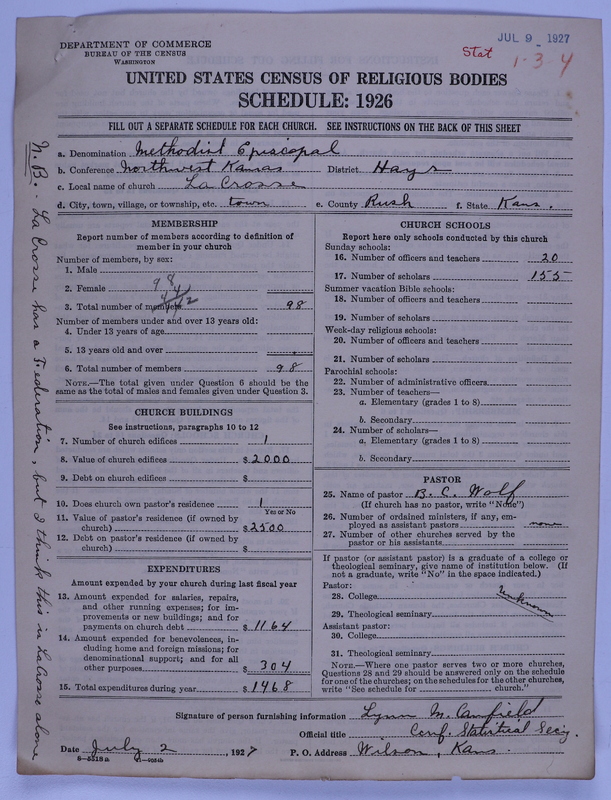 JUL 9 1927
Stat
1-3-4
DEPARTMENT OF COMMERCE
BUREAU OF THE CENSUS
WASHINGTON
UNITED STATES CENSUS OF RELIGIOUS BODIES
SCHEDULE: 1926
FILL OUT A SEPARATE SCHEDULE FOR EACH CHURCH. SEE INSTRUCTIONS ON THE BACK OF THIS SHEET
a. Denomination Methodist Episcopal
b. Conference Northwest Kansas District Hays
c. Local name of church La Crosse
d. City, town, village, or township, etc. town e. County Rush f. State Kans.
MEMBERSHIP
Report number of members according to definition of
member in your church
Number of members, by sex:
1. Male
2. Female
3. Total number of members 98
Number of members under and over 13 years old:
4. Under 13 years of age
5. 13 years old and over
6. Total number of members 98
NOTE.—The total given under Question 6 should be the
same as the total of males and females given under Question 3.
CHURCH BUILDINGS
See instructions, paragraphs 10 to 12
7. Number of church edifices 1
8. Value of church edifices $2000
9. Debt on church edifices $
10. Does church own pastor's residence 1
Yes or No
11. Value of pastor's residence (if owned by
church) $2500
12. Debt on pastor's residence (if owned by
church) $
EXPENDITURES
Amount expended by your church during last fiscal year
13. Amount expended for salaries, repairs,
and other running expenses; for im-
provements or new buildings; and for
payments on church debt $1164
14. Amount expended for benevolences, in-
cluding home and foreign missions; for
denominational support; and for all
other purposes $304
15. Total expenditures during year $1468
CHURCH SCHOOLS
Report here only schools conducted by this church
Sunday schools:
16. Number of officers and teachers 20
17. Number of scholars 155
Summer vacation Bible schools:
18. Number of officers and teachers
19. Number of scholars
Week-day religious schools:
20. Number of officers and teachers
21. Number of scholars
Parochial schools:
22. Number of administrative officers
23. Number of teachers—
a. Elementary (grades 1 to 8)
b. Secondary
24. Number of scholars—
a. Elementary (grades 1 to 8)
b. Secondary
PASTOR
25. Name of pastor B. C. Wolf
(If church has no pastor, write "None")
26. Number of ordained ministers, if any, em-
ployed as assistant pastors none
27. Number of other churches served by the
pastor or his assistants
If pastor (or assistant pastor) is a graduate of a college or
theological seminary, give name of institution below. (If
not a graduate, write "No" in the space indicated.)
Pastor:
28. College Unknown
29. Theological seminary
Assistant pastor:
30. College
31. Theological seminary
NOTE.—Where one pastor serves two or more churches,
Questions 28 and 29 should be answered only on the schedule
for one of the churches; on the schedules for the other churches,
write "See schedule for church."
Signature of person furnishing information Lynn M. Canfield
Official title Conf. Statistical Sec'y.
Date July 2, 1927 P. O. Address Wilson, Kans.
N.B.- La Crosse has a Federation, but I think this is La Crosse alone